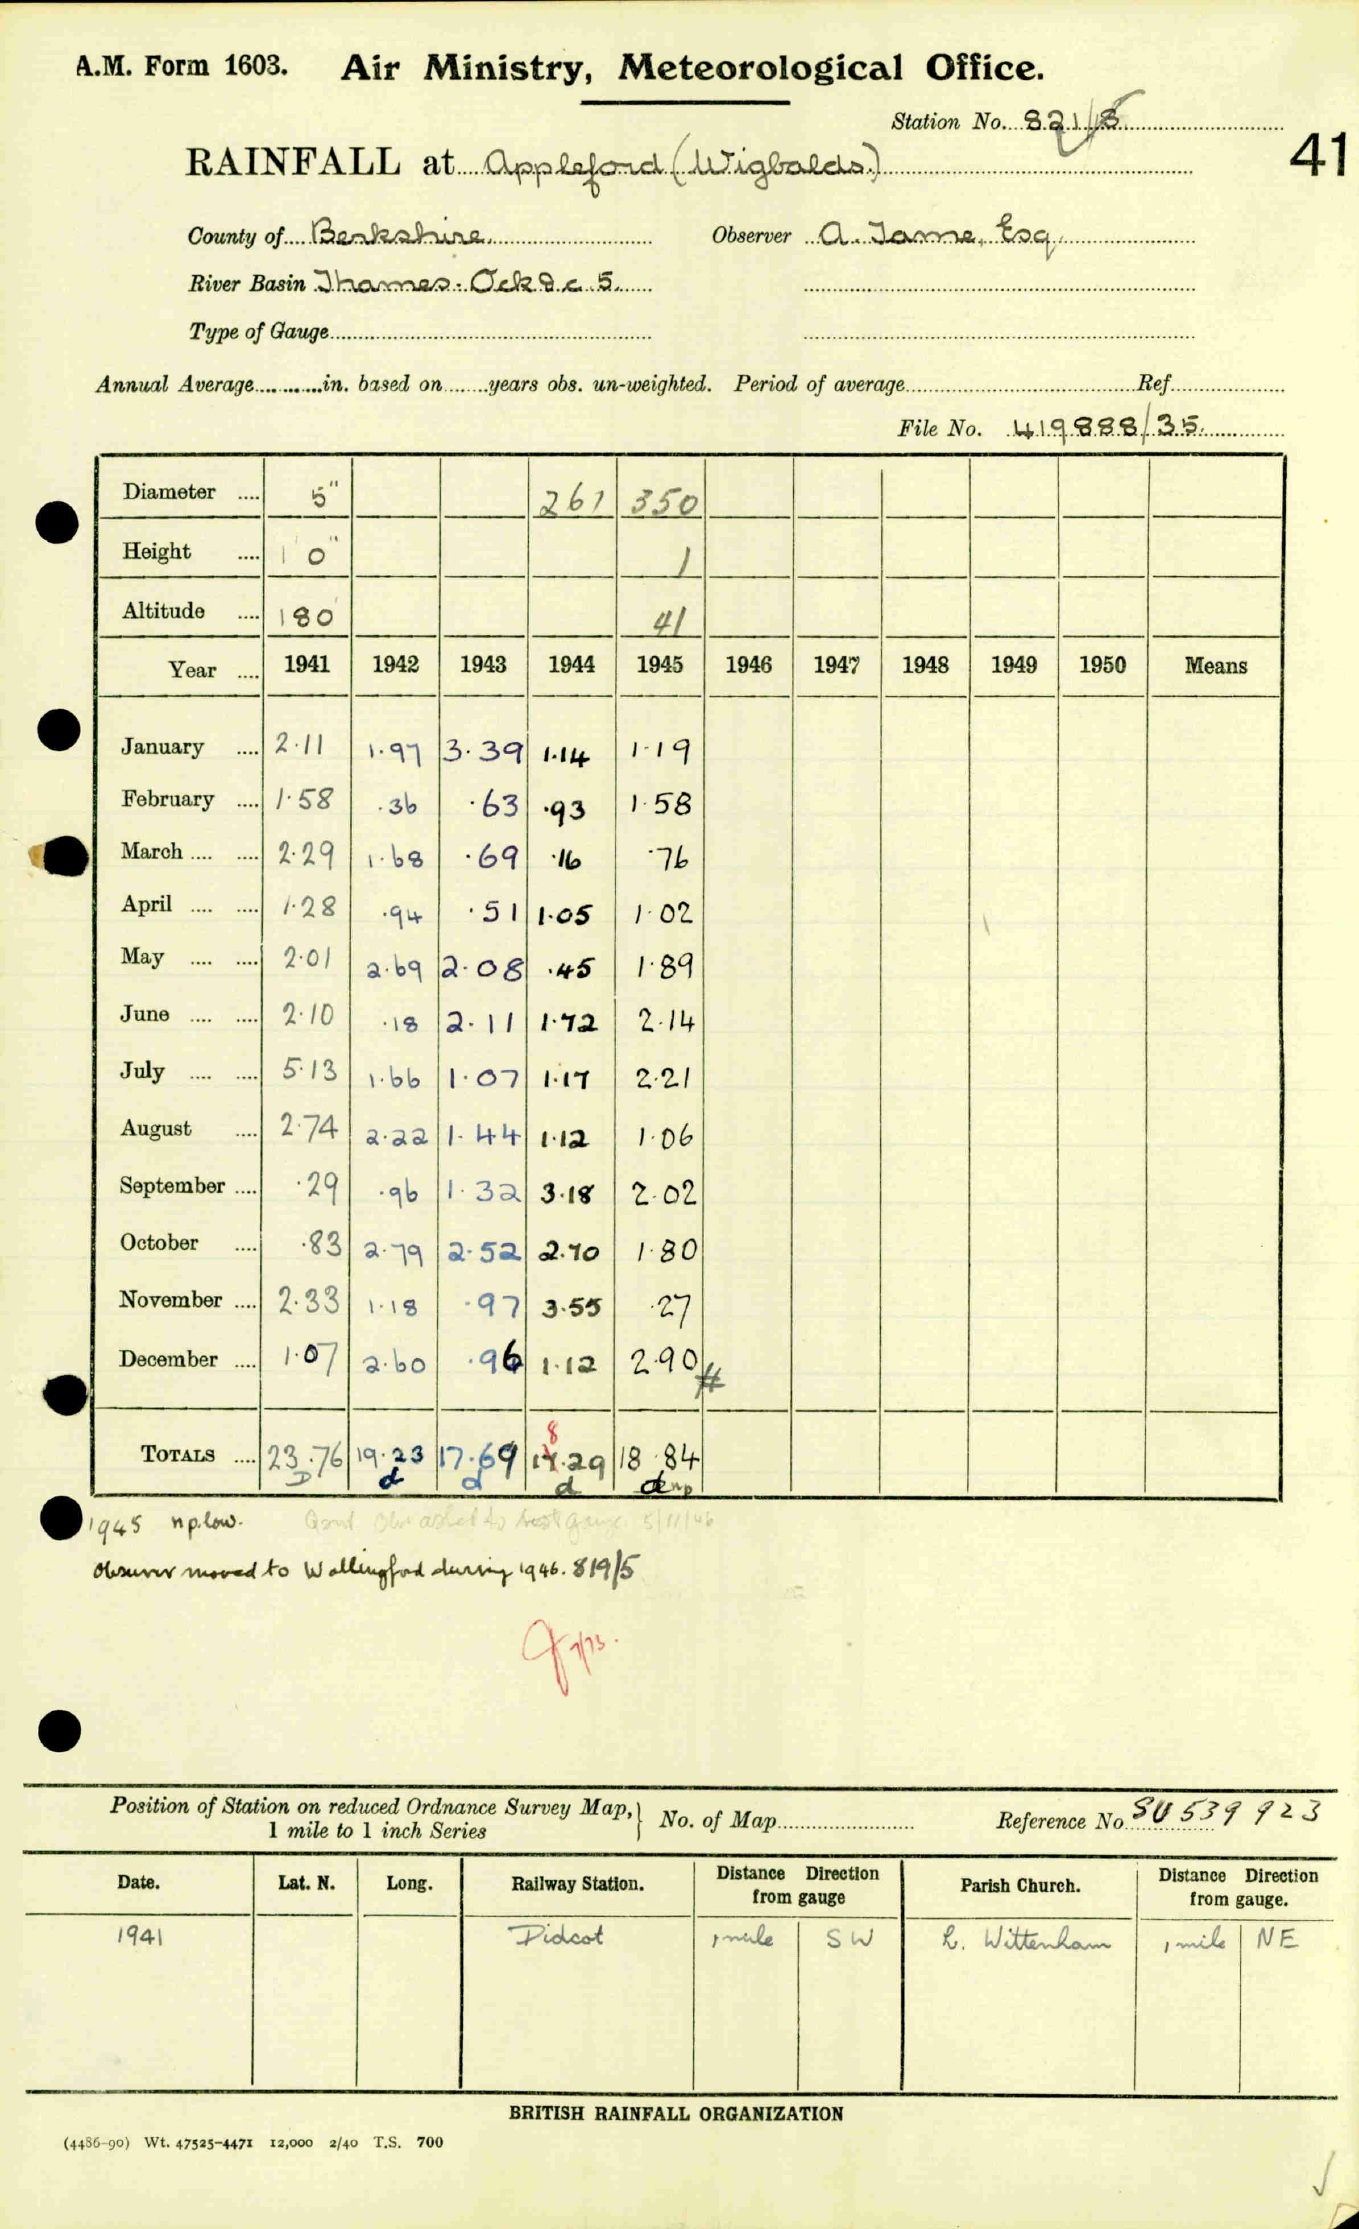 A.M. Form 1603. Air Ministry, Meteorological Office.
Station No. 821/8
41
RAINFALL at Appleford (Wigbalds.)
County of Berkshire. Observer A. Tame, Esq.
River Basin Thames. Ock &c. 5.
Type of Gauge
Annual Average in. based on years obs. un-weighted. Period of average Ref.
File No. 419888/35.
Diameter .... 5" 261 350
Height .... 1' 0" 1
Altitude .... 180' 41
Year .... 1941 1942 1943 1944 1945 1946 1947 1948 1949 1950 Means
January .... 2.11 1.97 3.39 1.14 1.19
February .... 1.58 .36 .63 .93 1.58
March .... .... 2.29 1.68 .69 .16 .76
April .... .... 1.28 .94 .51 1.05 1.02
May .... .... 2.01 2.69 2.08 .45 1.89
June .... .... 2.10 .18 2.11 1.72 2.14
July .... .... 5.13 1.66 1.07 1.17 2.21
August .... 2.74 2.22 1.44 1.12 1.06
September .... .29 .96 1.32 3.18 2.02
October .... .83 2.79 2.52 2.70 1.80
November .... 2.33 1.18 .97 3.55 .27
December .... 1.07 2.60 .96 1.12 2.90 #
8
TOTALS .... 23.76 19.23 17.69 17.29 18.84
D d d d d np
1945 n.p. low. 5/11/46
Observer moved to Wallingford during 1946. 819/5
7/73.
Position of Station on reduced Ordnance Survey Map, } No. of Map Reference No. SU 539 923
1 mile to 1 inch Series
Date. Lat. N. Long. Railway Station. Distance Direction from gauge Parish Church. Distance Direction from gauge.
1941 Didcot 1 mile SW L. Wittenham 1 mile NE
BRITISH RAINFALL ORGANIZATION
(4486-90) Wt. 47525-4471 12,000 2/40 T.S. 700